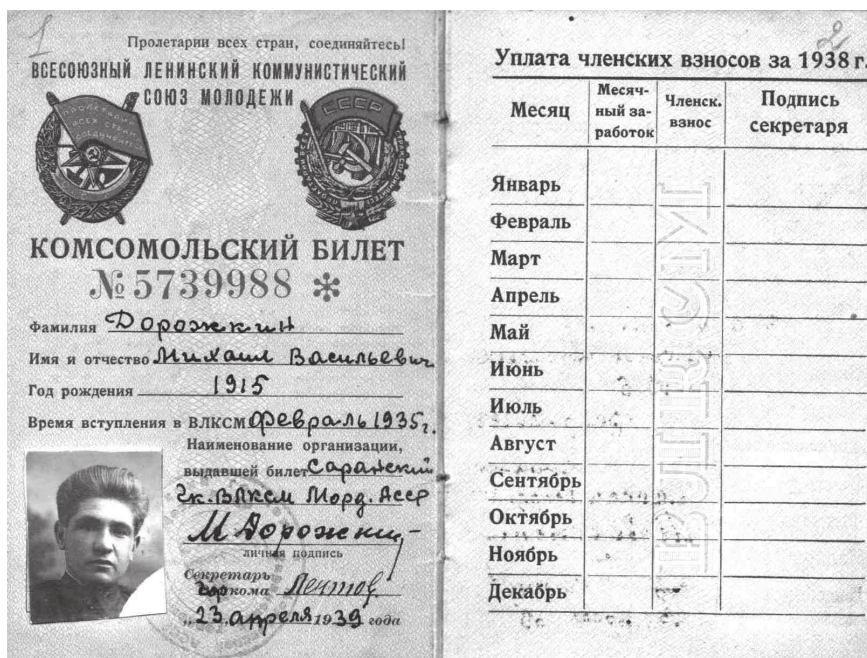 1
Пролетарии всех стран, соединяйтесь!
ВСЕСОЮЗНЫЙ ЛЕНИНСКИЙ КОММУНИСТИЧЕСКИЙ
СОЮЗ МОЛОДЕЖИ
СССР
КОМСОМОЛЬСКИЙ БИЛЕТ
№ 5739988 *
Фамилия Дорожкин
Имя и отчество Михаил Васильевич
Год рождения 1915
Время вступления в ВЛКСМ февраль 1935г.
Наименование организации,
выдавшей билет Саранский
гк. ВЛКСМ Морд. Асср
М Дорожкин
личная подпись
Секретарь
горкома
„23„ апреля 1939 года
2
Уплата членских взносов за 1938 г.
Месяц
Месяч-
ный за-
работок
Членск.
взнос
Подпись
секретаря
Январь
Февраль
Март
Апрель
Май
Июнь
Июль
Август
Сентябрь
Октябрь
Ноябрь
Декабрь